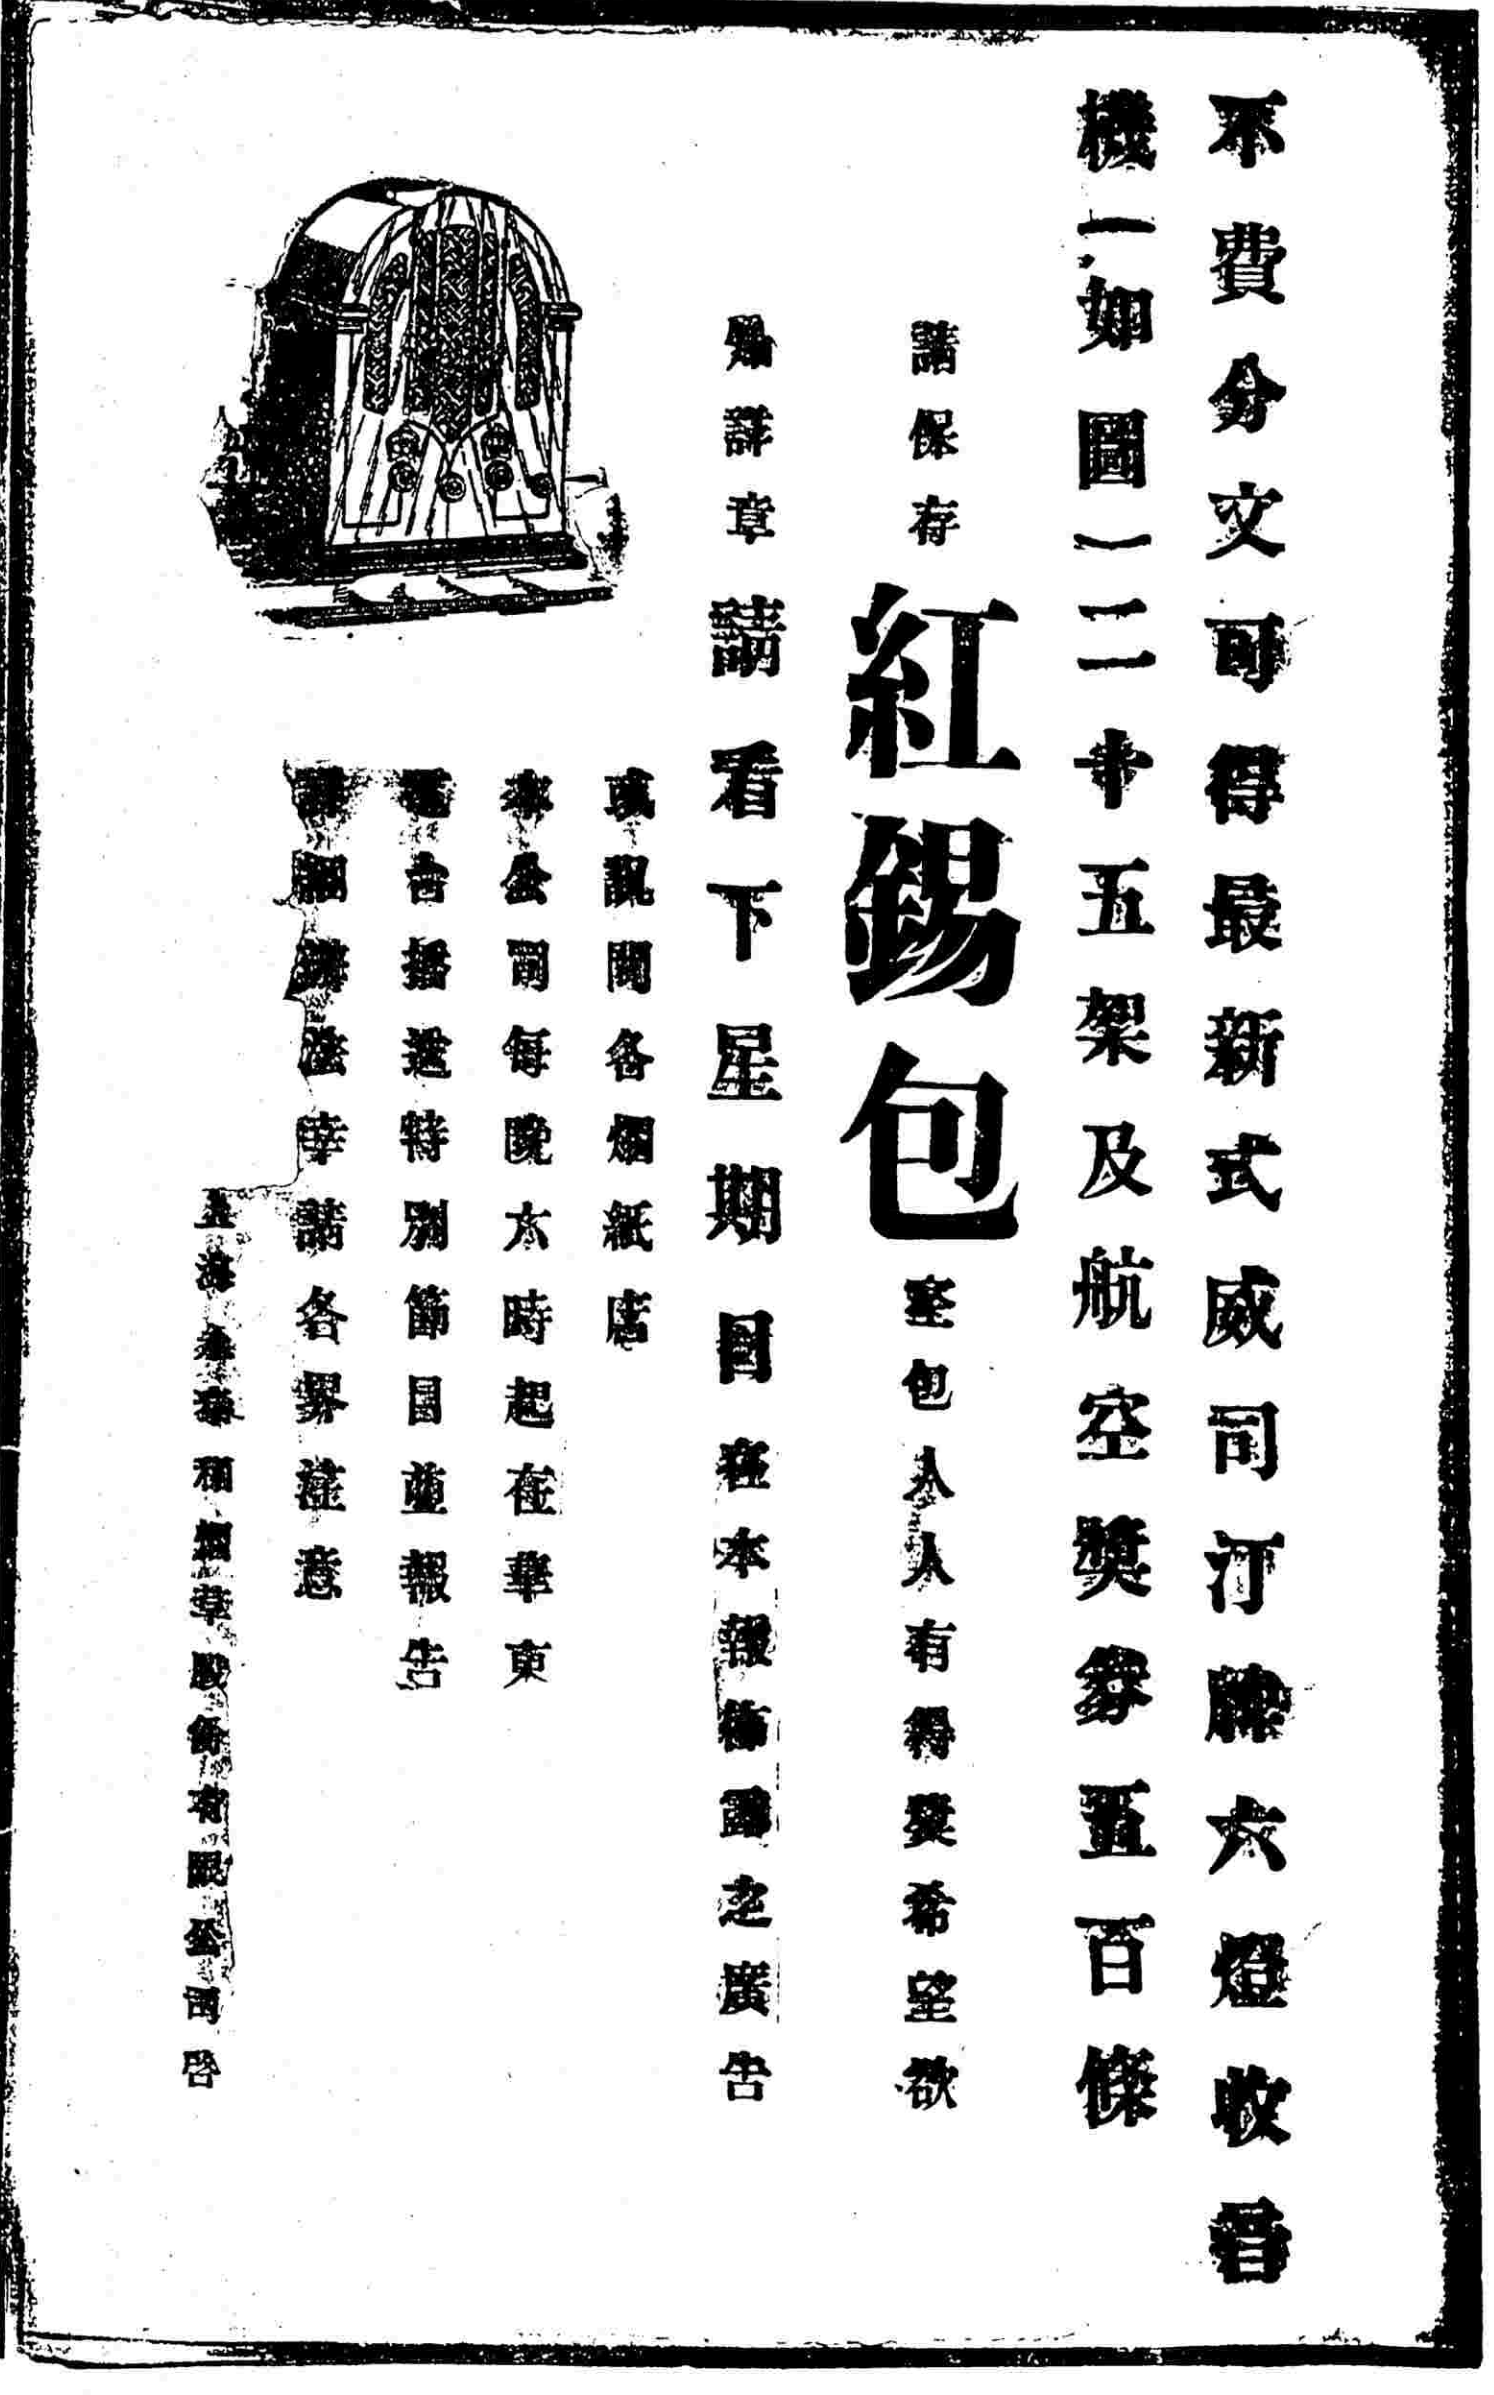 不費分文可得最新式威司汀牌六燈收音
機(如圖)二十五架及航空獎券五百條
請保存紅錫包空包人人有得獎希望欲
知詳章請看下星期日在本報佈露之廣告
或詢問各烟紙店
本公司每晚六時起在華東
電台播送特別節目並報告
詳細辦法幸請各界注意
上海 和烟草股份有限公司啓